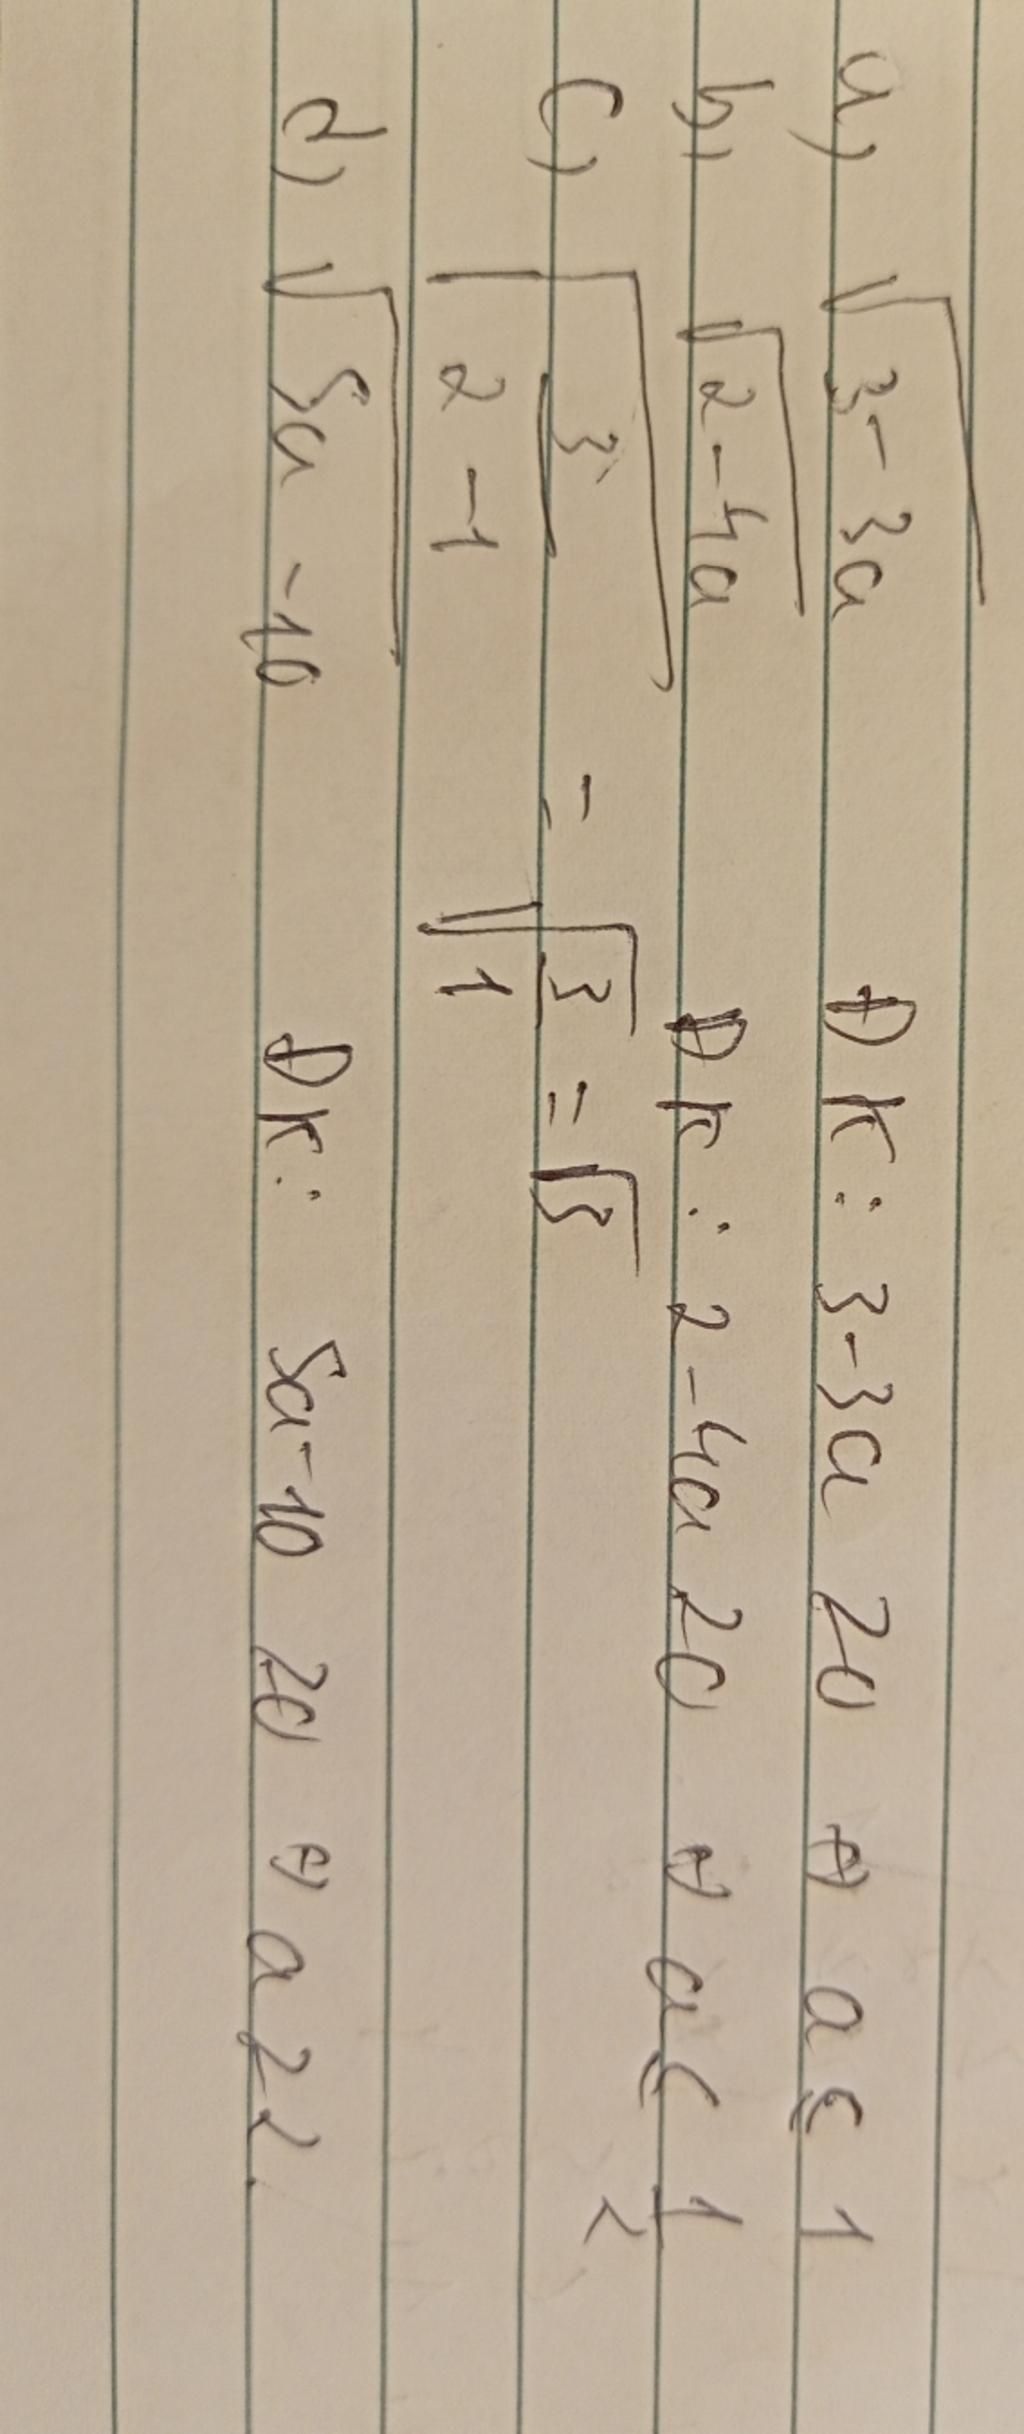 a) √(3-3a) ĐK: 3-3a ≥0 ⇔ a ≤ 1
b) √(2-4a) ĐK: 2-4a ≥0 ⇔ a ≤ 1/2
c) √(3/(2-1)) = √(3/1) = √3
d) √(5a-10) ĐK: 5a-10 ≥0 ⇔ a ≥ 2.